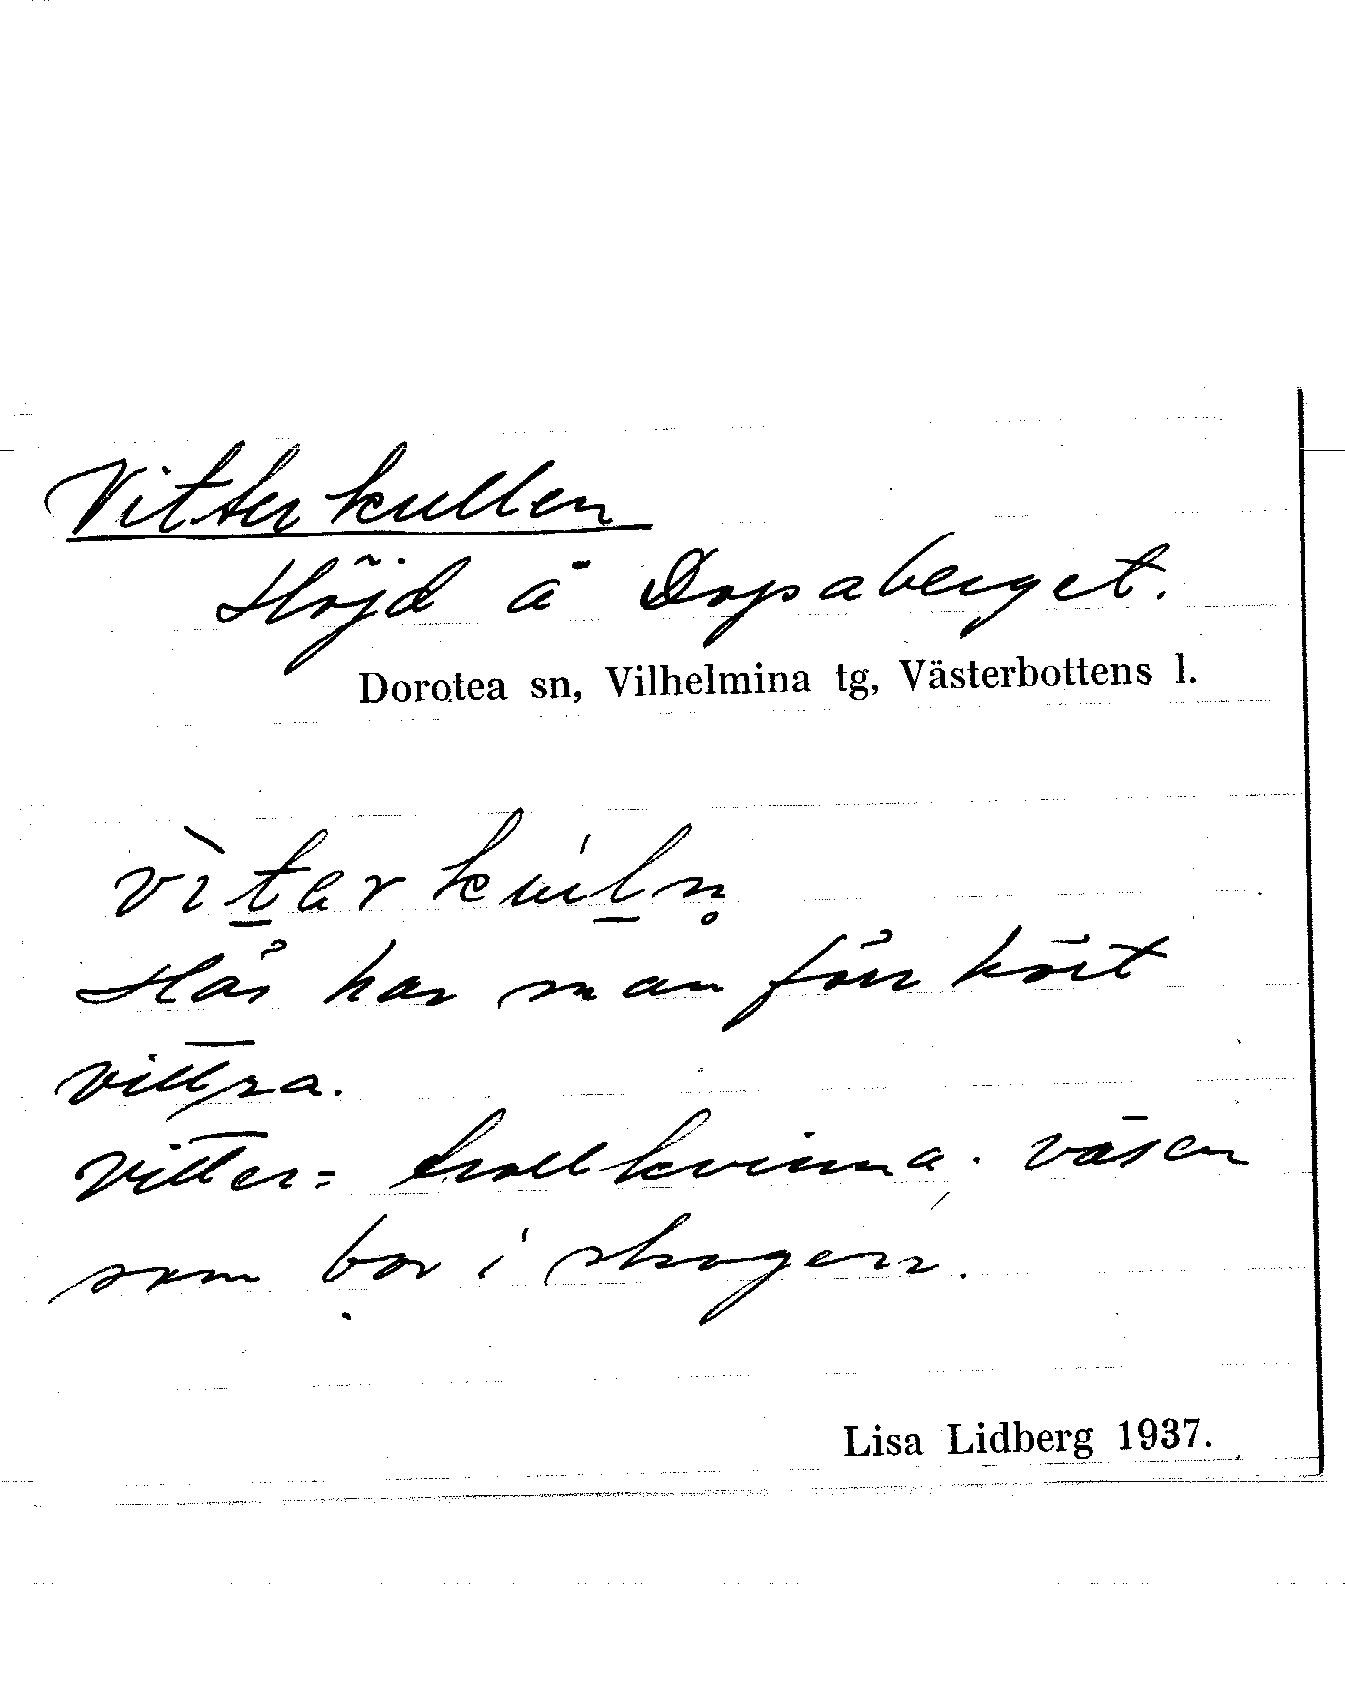 Vitterkullen
Höjd å Dopsaberget.
Dorotea sn, Vilhelmina tg, Västerbottens l.
Här har man förr hört
vittra.
vitter= trollkvinna, väsen
som bor i skogen.
Lisa Lidberg 1937.